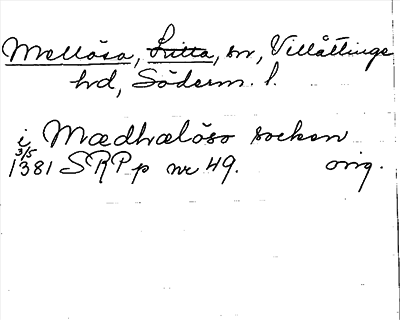 Mellösa, Lutta, sn, Villåttinge
hd, Söderm. l.
i Mædhalöso sockon
3/5
1381 SRPp nr 49. orig.